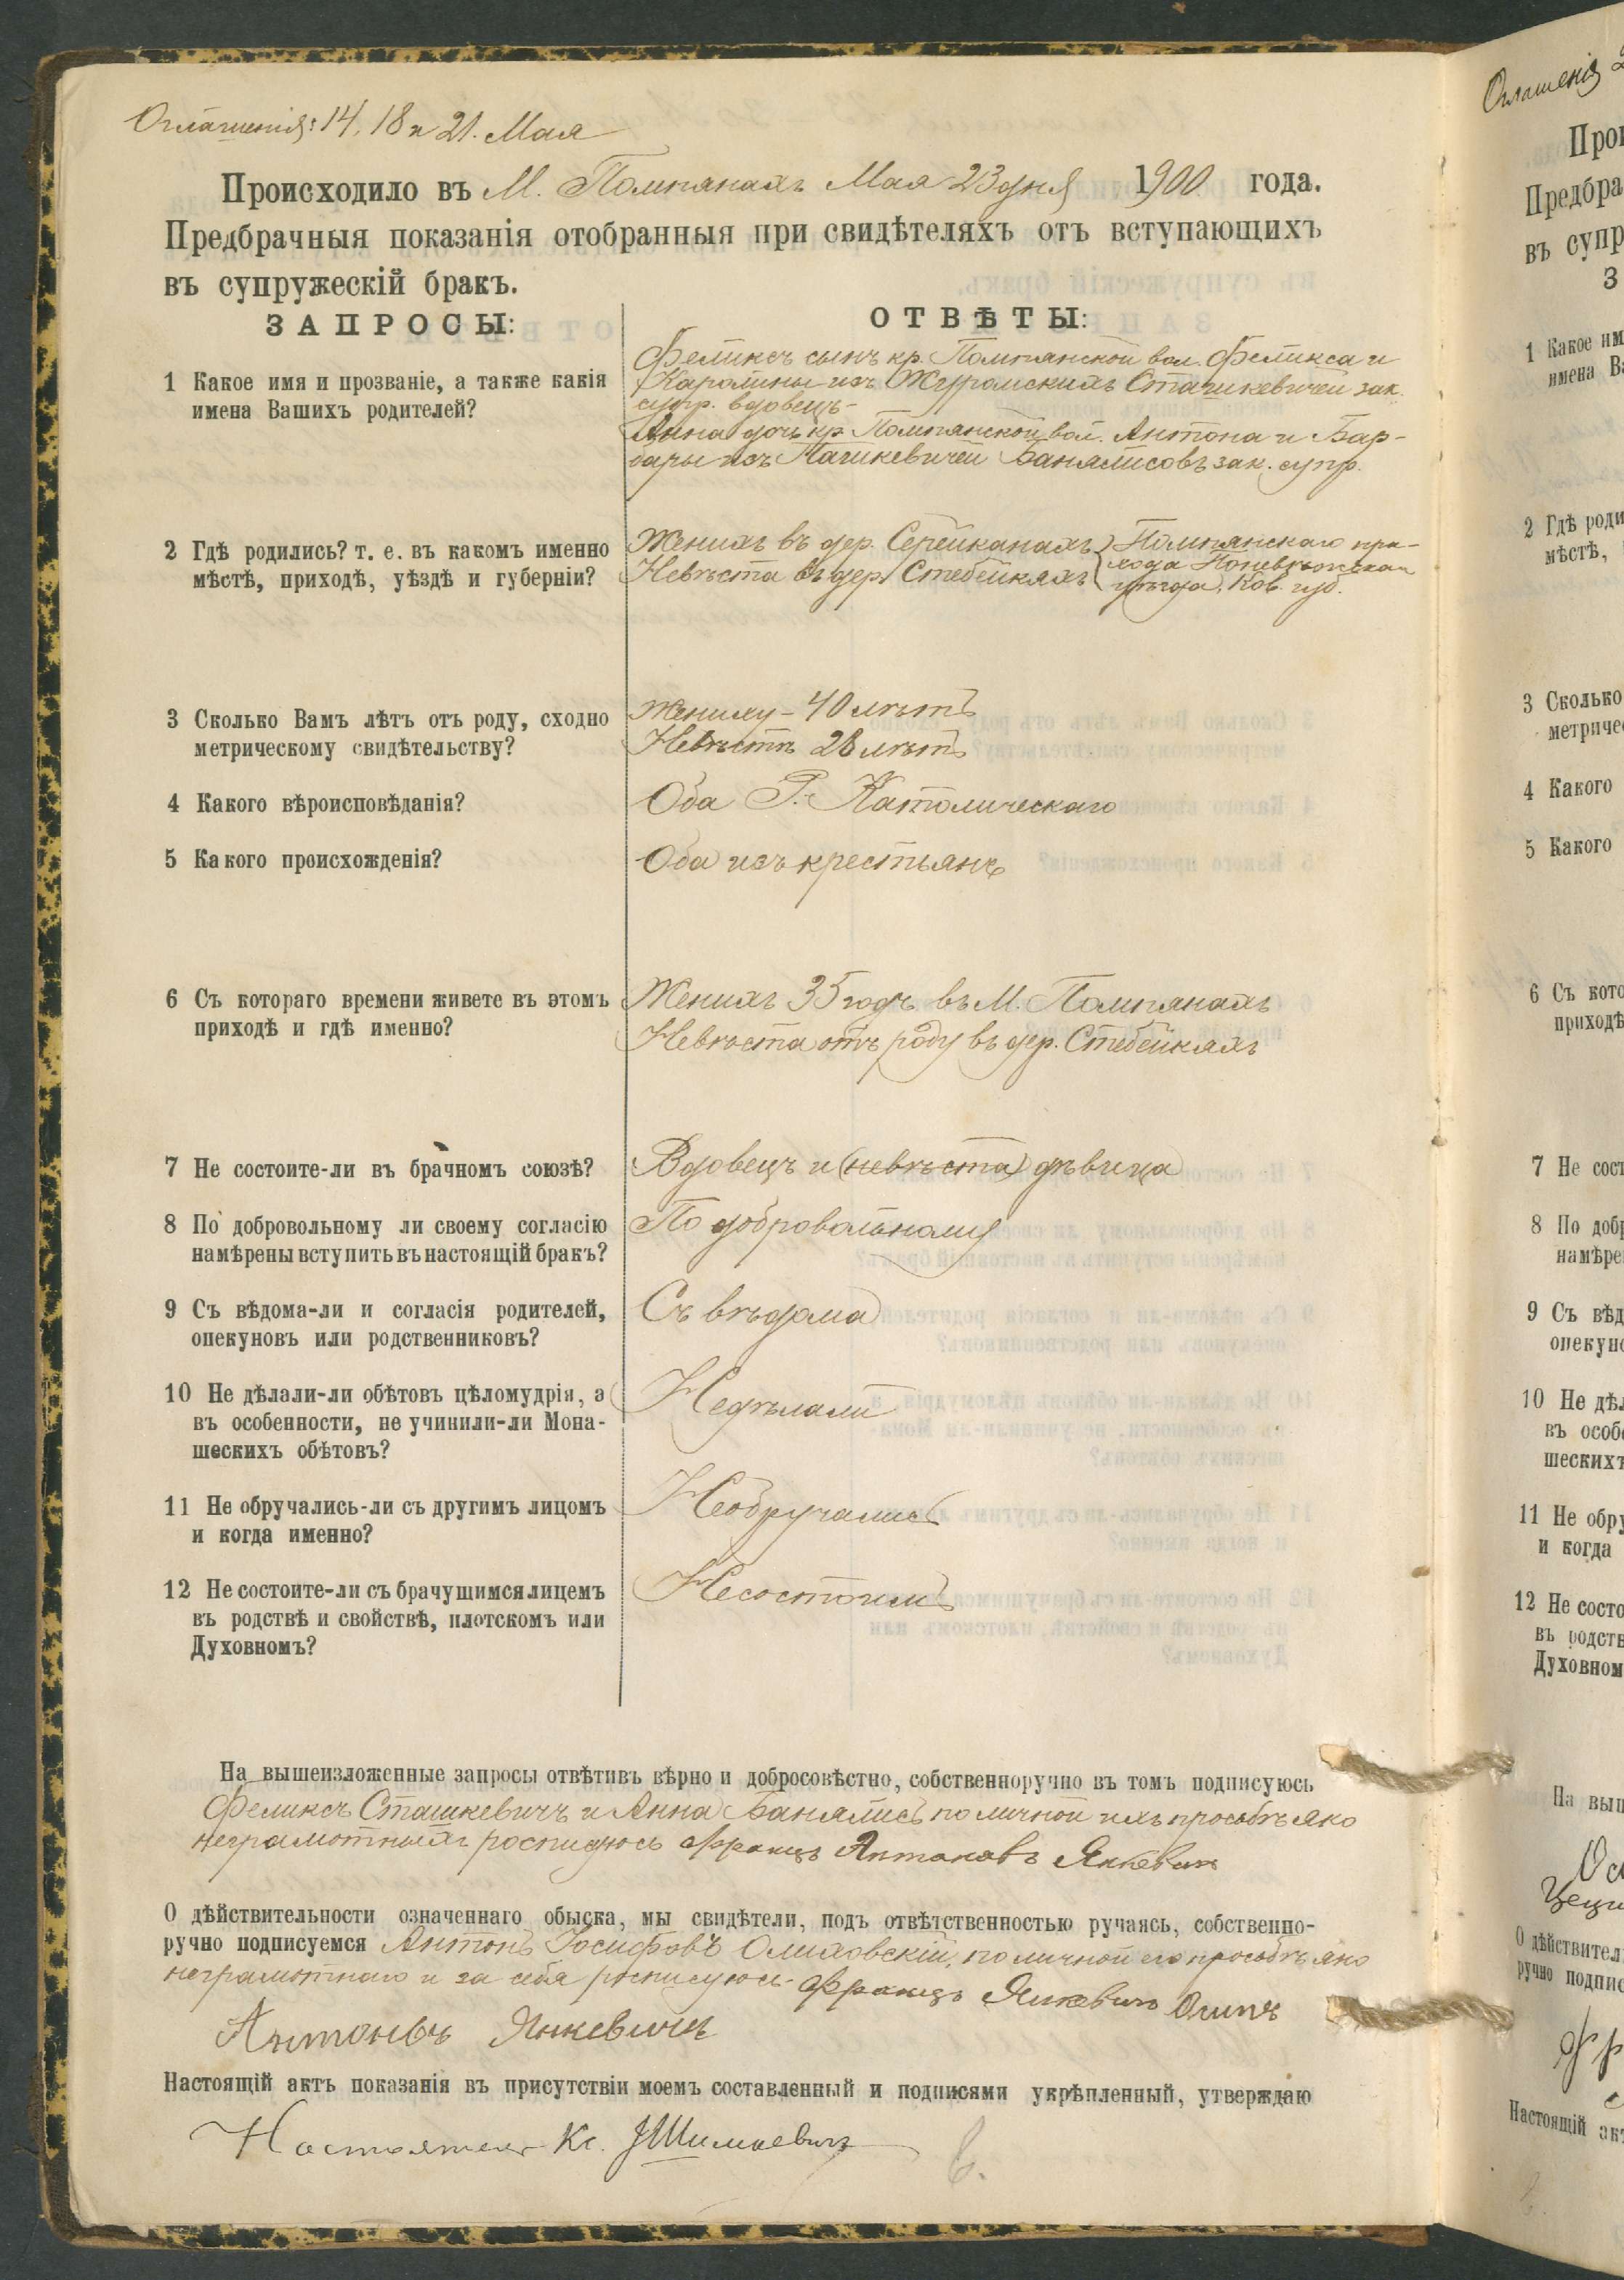 Оглашенія: 14, 18 и 21. Мая
Происходило въ М. Помпянахъ Мая 23 дня 1900 года.
Предбрачныя показанія отобранныя при свидѣтеляхъ отъ вступающихъ
въ супружескій бракъ.
ЗАПРОСЫ:
ОТВѢТЫ:
1 Какое имя и прозваніе, а также какія
имена Вашихъ родителей?
Феликсъ сынъ кр. Помпянской вол. Феликса и
Каролины изъ Сташкевичей зак.
супр. вдовецъ-
Анна дочь кр. Помпянской вол. Антона и Бар-
бары изъ Пашкевичей Банялисовъ зак. супр.
2 Гдѣ родились? т. е. въ какомъ именно
мѣстѣ, приходѣ, уѣздѣ и губерніи?
Женихъ въ дер. Серейканахъ } Помпянскаго при-
Невѣста въ дер. Стебейкяхъ { хода
уѣзда, Ков. губ.
3 Сколько Вамъ лѣтъ отъ роду, сходно
метрическому свидѣтельству?
Жениху - 40 лѣтъ
Невѣстѣ 28 лѣтъ
4 Какого вѣроисповѣданія?
Оба Р.- Католическаго
5 Какого происхожденія?
Оба изъ крестьянъ
6 Съ котораго времени живете въ этомъ
приходѣ и гдѣ именно?
Женихъ 35 годъ въ М. Помпянахъ
Невѣста отъ роду въ дер. Стебейкяхъ
7 Не состоите-ли въ брачномъ союзѣ?
Вдовецъ и (невѣста) дѣвица
8 По добровольному ли своему согласію
намѣрены вступить въ настоящій бракъ?
По добровольному
9 Съ вѣдома-ли и согласія родителей,
опекуновъ или родственниковъ?
Съ вѣдома
10 Не дѣлали-ли обѣтовъ цѣломудрія, а
въ особенности, не учинили-ли Мона-
шескихъ обѣтовъ?
Недѣлали
11 Не обручались-ли съ другимъ лицомъ
и когда именно?
Необручались
12 Не состоите-ли съ брачущимся лицемъ
въ родствѣ и свойствѣ, плотскомъ или
Духовномъ?
Несостоимъ
На вышеизложенные запросы отвѣтивъ вѣрно и добросовѣстно, собственноручно въ томъ подписуюсь
Феликсъ Сташкевичъ и Анна Банялисъ по личной ихъ просьбѣ яко
неграмотныхъ росписуюсь Францъ Антоновъ Янкевичъ
О дѣйствительности означеннаго обыска, мы свидѣтели, подъ отвѣтственностью ручаясь, собственно-
ручно подписуемся Антонъ Іосифовъ Олиховскій, по личной его просьбѣ яко
неграмотнаго и за себя росписуюсь Францъ Янкевичъ Осипъ
Антоновъ Янкевичъ
Настоящій актъ показанія въ присутствіи моемъ составленный и подписями укрѣпленный, утверждаю
Настоятель Кс.